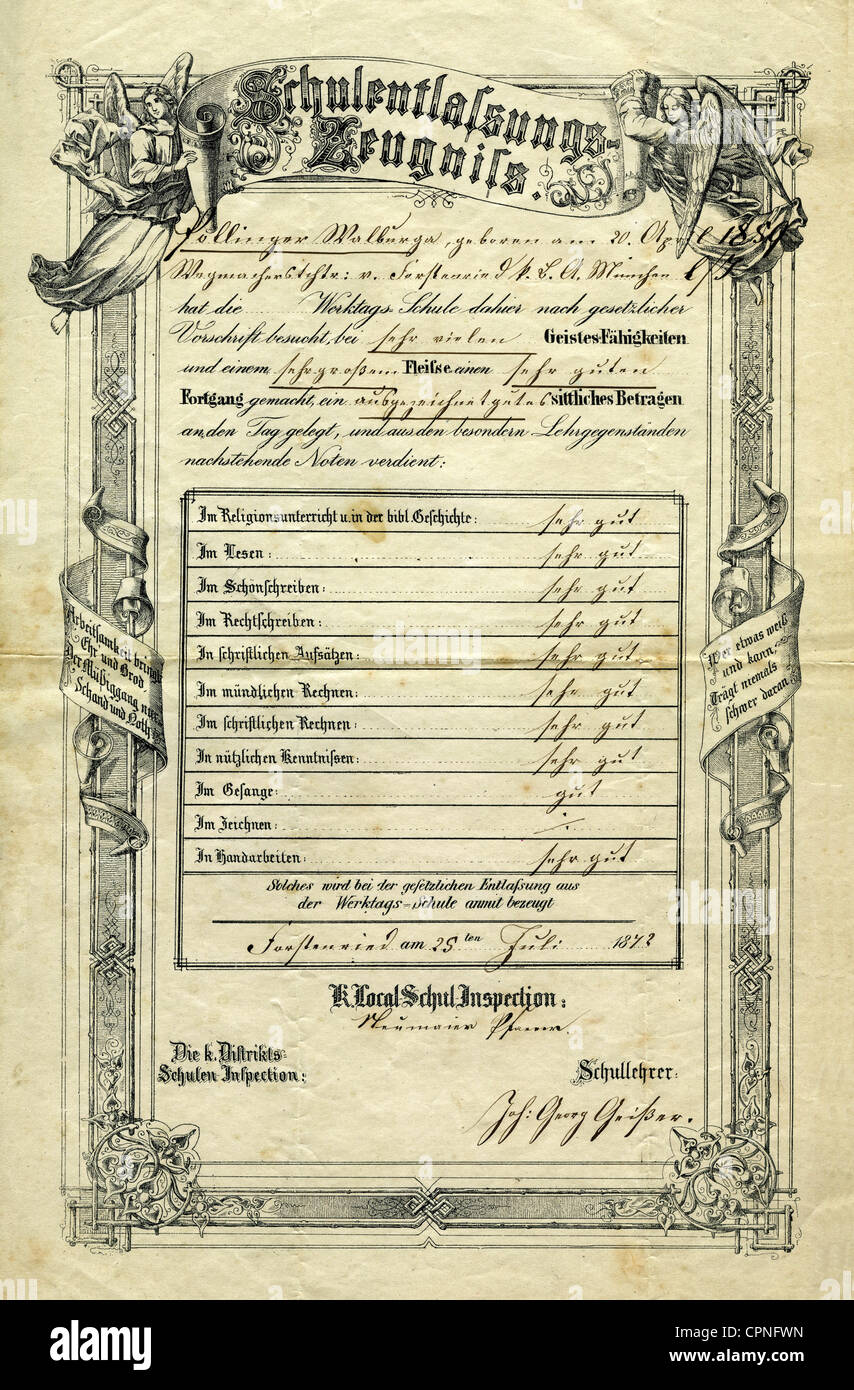 Schulentlaſsungs-
Zeugniſs.
Pöllinger Walburga, geboren am 20. April 1859
Wegmacherstchtr: v. Forstenried k. B. A. München
hat die Werktags-Schule dahier nach gesetzlicher
Vorschrift besucht, bei sehr vielen Geistes-Fähigkeiten
und einem sehr großem Fleiſse einen sehr guten
Fortgang gemacht, ein ausgezeichnet gutes sittliches Betragen
an den Tag gelegt, und aus den besondern Lehrgegenständen
nachstehende Noten verdient:
Im Religionsunterricht u. in der bibl. Geſchichte: sehr gut
Im Leſen: sehr gut
Im Schönſchreiben: sehr gut
Im Rechtſchreiben: sehr gut
In ſchriſtlichen Aufsätzen: sehr gut
Im mündlichen Rechnen: sehr gut
Im ſchriftlichen Rechnen: sehr gut
In nützlichen Kenntniſsen: sehr gut
Im Geſange: gut
Im Zeichnen: ·/·
In Handarbeiten: sehr gut
Solches wird bei der geſetzlichen Entlaſsung aus
der Werktags-Schule anmit bezeugt
Forstenried am 25ten Juli 1872
Arbeitſamkeit bringt
Ehr und Brod,
Der Müßiggang nur
Schand und Noth.
Wer etwas weiß
und kann,
Trägt niemals
ſchwer daran
K. Local Schul Inſpection:
Neumaier Pfarrer
Die k. Diſtrikts-
Schulen Inſpection:
Schullehrer:
Joh: Georg Geißer.
alamy
Image ID: CPNFWN
www.alamy.com